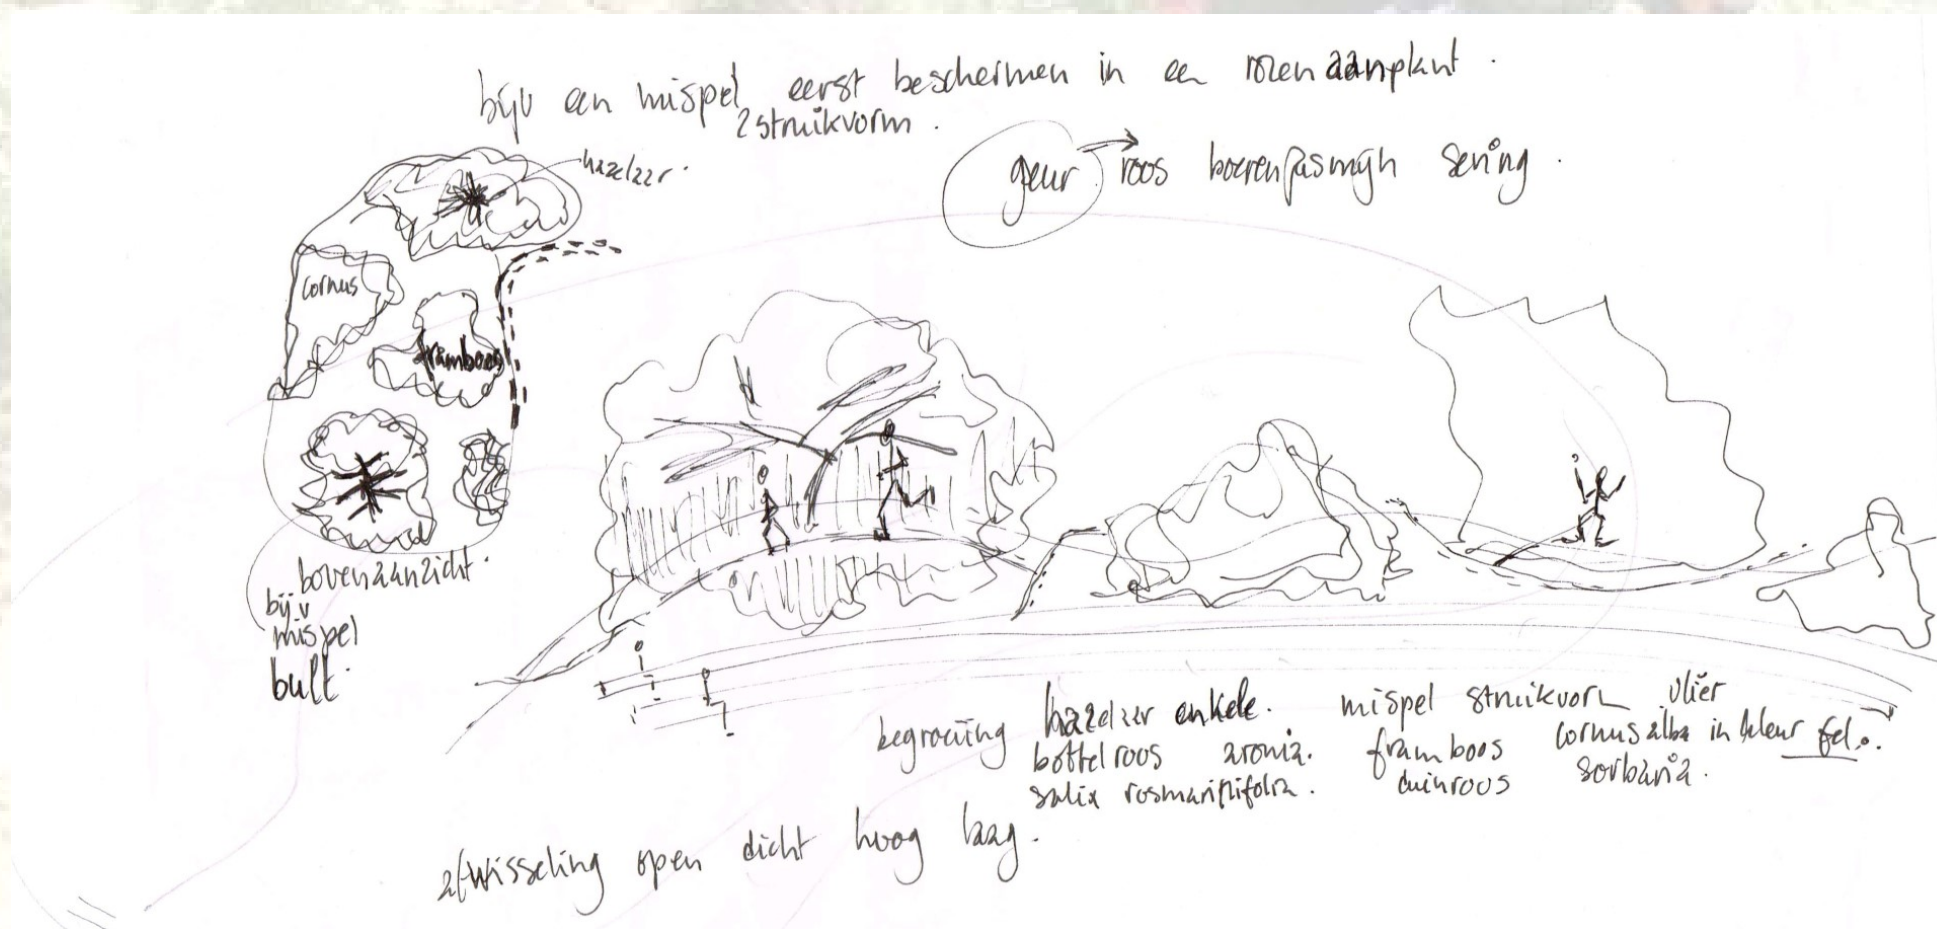 bijv een mispel eerst beschermen in een rozenaanplant.
2 struikvorm.
hazelaar.
geur → roos boerenjasmijn sering.
cornus
framboos
bovenaanzicht.
bijv
mispel
bult.
begroeiing hazelaar enkele. mispel struikvorm vlier
bottelroos aronia. framboos cornus alba in kleur fel.
salix rosmarinifolia. duinroos sorbaria.
afwisseling open dicht hoog laag.